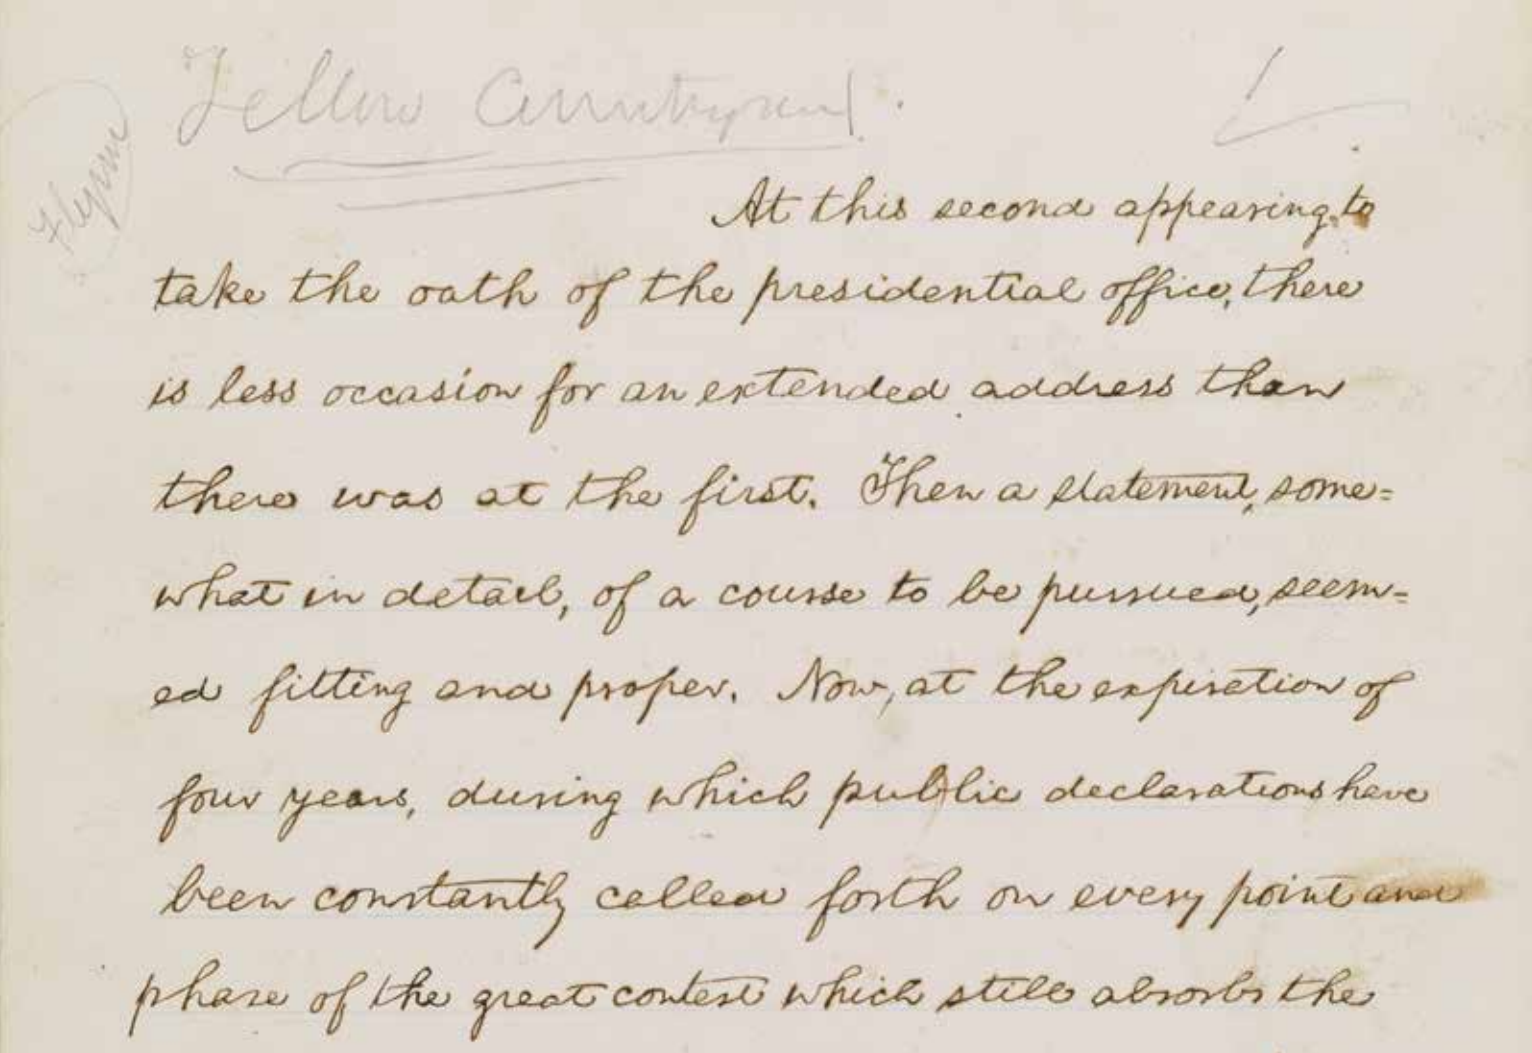 Fellow Countrymen.
At this second appearing, to
take the oath of the presidential office, there
is less occasion for an extended address than
there was at the first. Then a statement, some=
what in detail, of a course to be pursued, seem=
ed fitting and proper. Now, at the expiration of
four years, during which public declarations have
been constantly called forth on every point and
phase of the great contest which still absorbs the